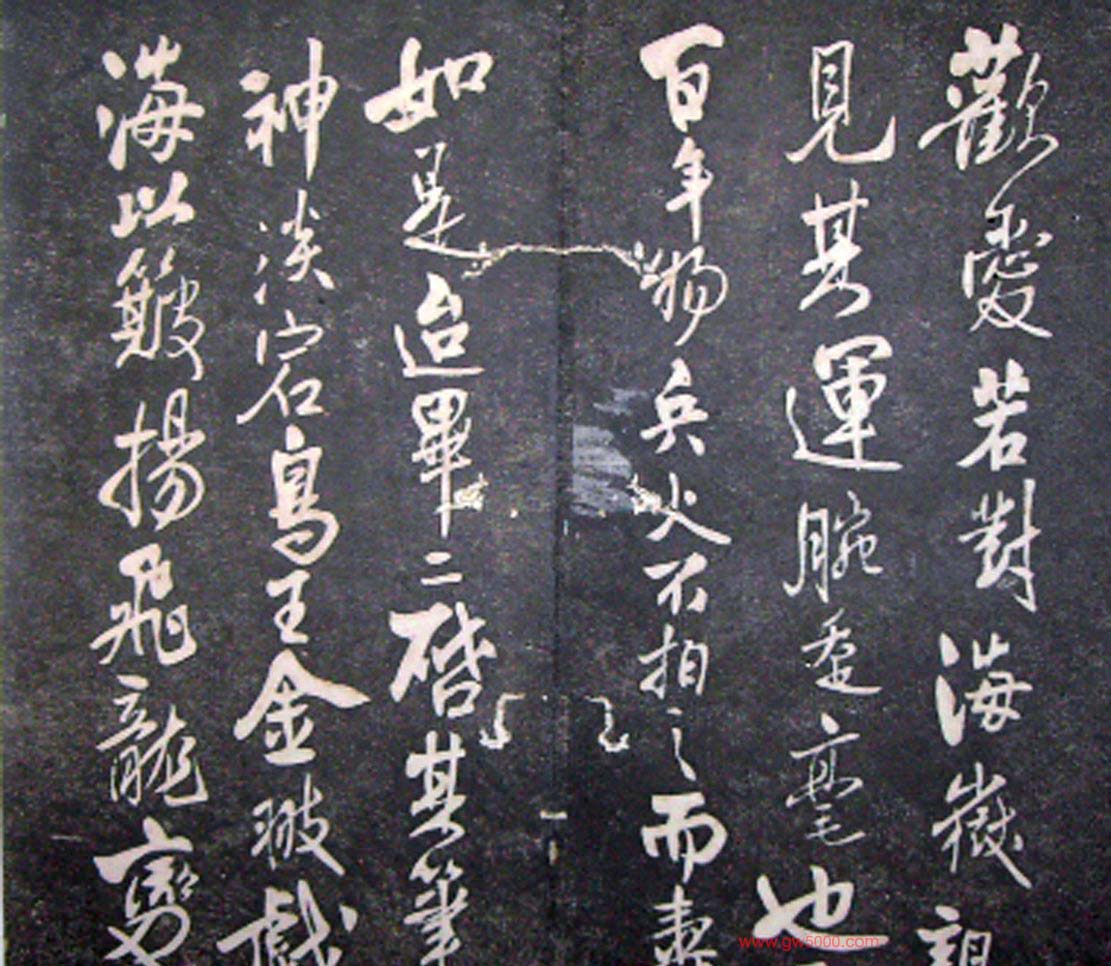 歡愛若對海嶽親
見其運腕垂毫也
百年物兵火不相之而壽
如是迨畢二啓其筆
神淡宕鳥王金翅戲
海以簸揚飛龍
www.gw5000.com